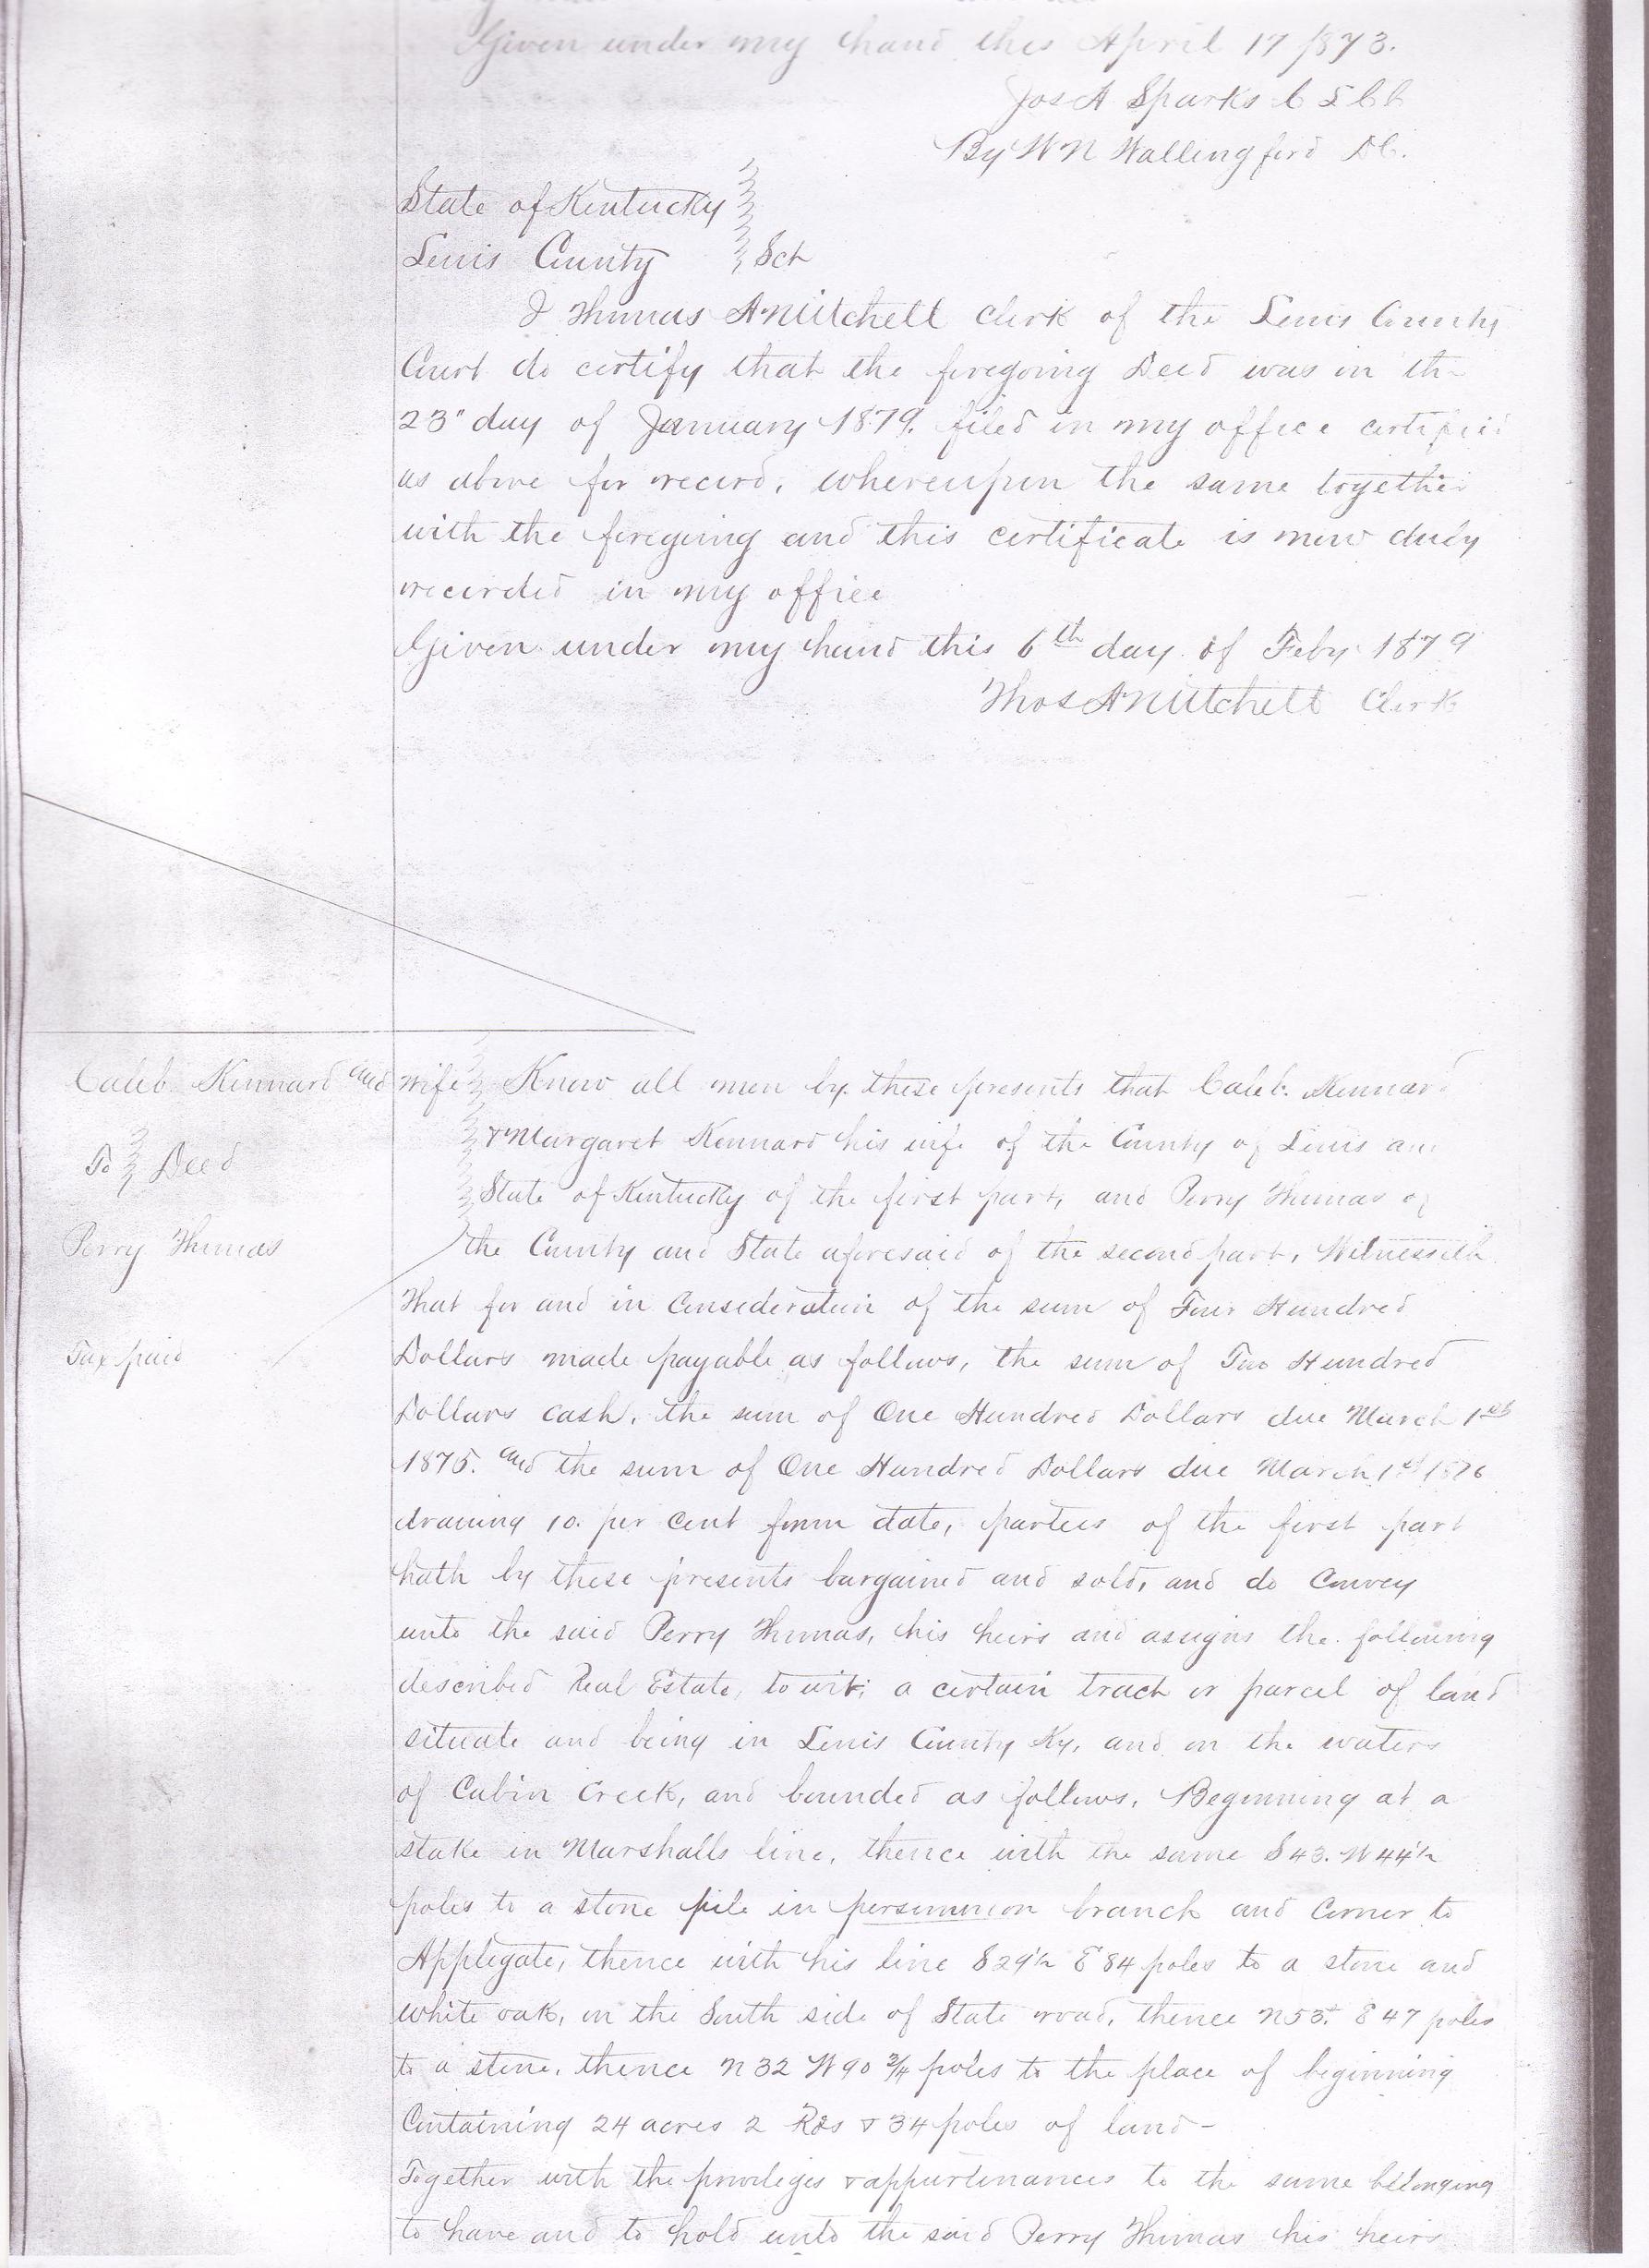 Given under my hand this April 17 1873.
Jos A Sparks C L C C
By W N Wallingford D C.
State of Kentucky
Lewis County Sct
I Thomas A Mitchell Clerk of the Lewis County
Court do certify that the foregoing Deed was on the
23" day of January 1879. filed in my office certified
as above for record, whereupon the same together
with the foregoing and this certificate is now duly
recorded in my office
Given under my hand this 6th day of Feby 1879
Thos A Mitchell Clerk
Caleb Kennard and wife
To Deed
Perry Thomas
Tax paid
Know all men by these presents that Caleb Kennard
& Margaret Kennard his wife of the County of Lewis and
State of Kentucky of the first part, and Perry Thomas of
the County and State aforesaid of the second part, Witnesseth
That for and in Consideration of the sum of Four Hundred
Dollars made payable as follows, the sum of Two Hundred
Dollars cash, the sum of One Hundred Dollars due March 1st
1875. and the sum of One Hundred Dollars due March 1st 1876
drawing 10 per cent from date, parties of the first part
hath by these presents bargained and sold, and do Convey
unto the said Perry Thomas, his heirs and assigns the following
described Real Estate, to wit; a certain tract or parcel of land
situate and being in Lewis County Ky, and on the waters
of Cabin Creek, and bounded as follows, Beginning at a
stake in Marshalls line, thence with the same S 43. W 44 1/2
poles to a stone pile in persimmon branch and Corner to
Applegate, thence with his line S 29 1/2 E 84 poles to a stone and
white oak, on the South side of State road, thence N 53. E 47 poles
to a stone, thence N 32 W 90 3/4 poles to the place of beginning
Containing 24 acres 2 Rds & 34 poles of land -
Together with the privileges & appurtenances to the same belonging
to have and to hold unto the said Perry Thomas his heirs